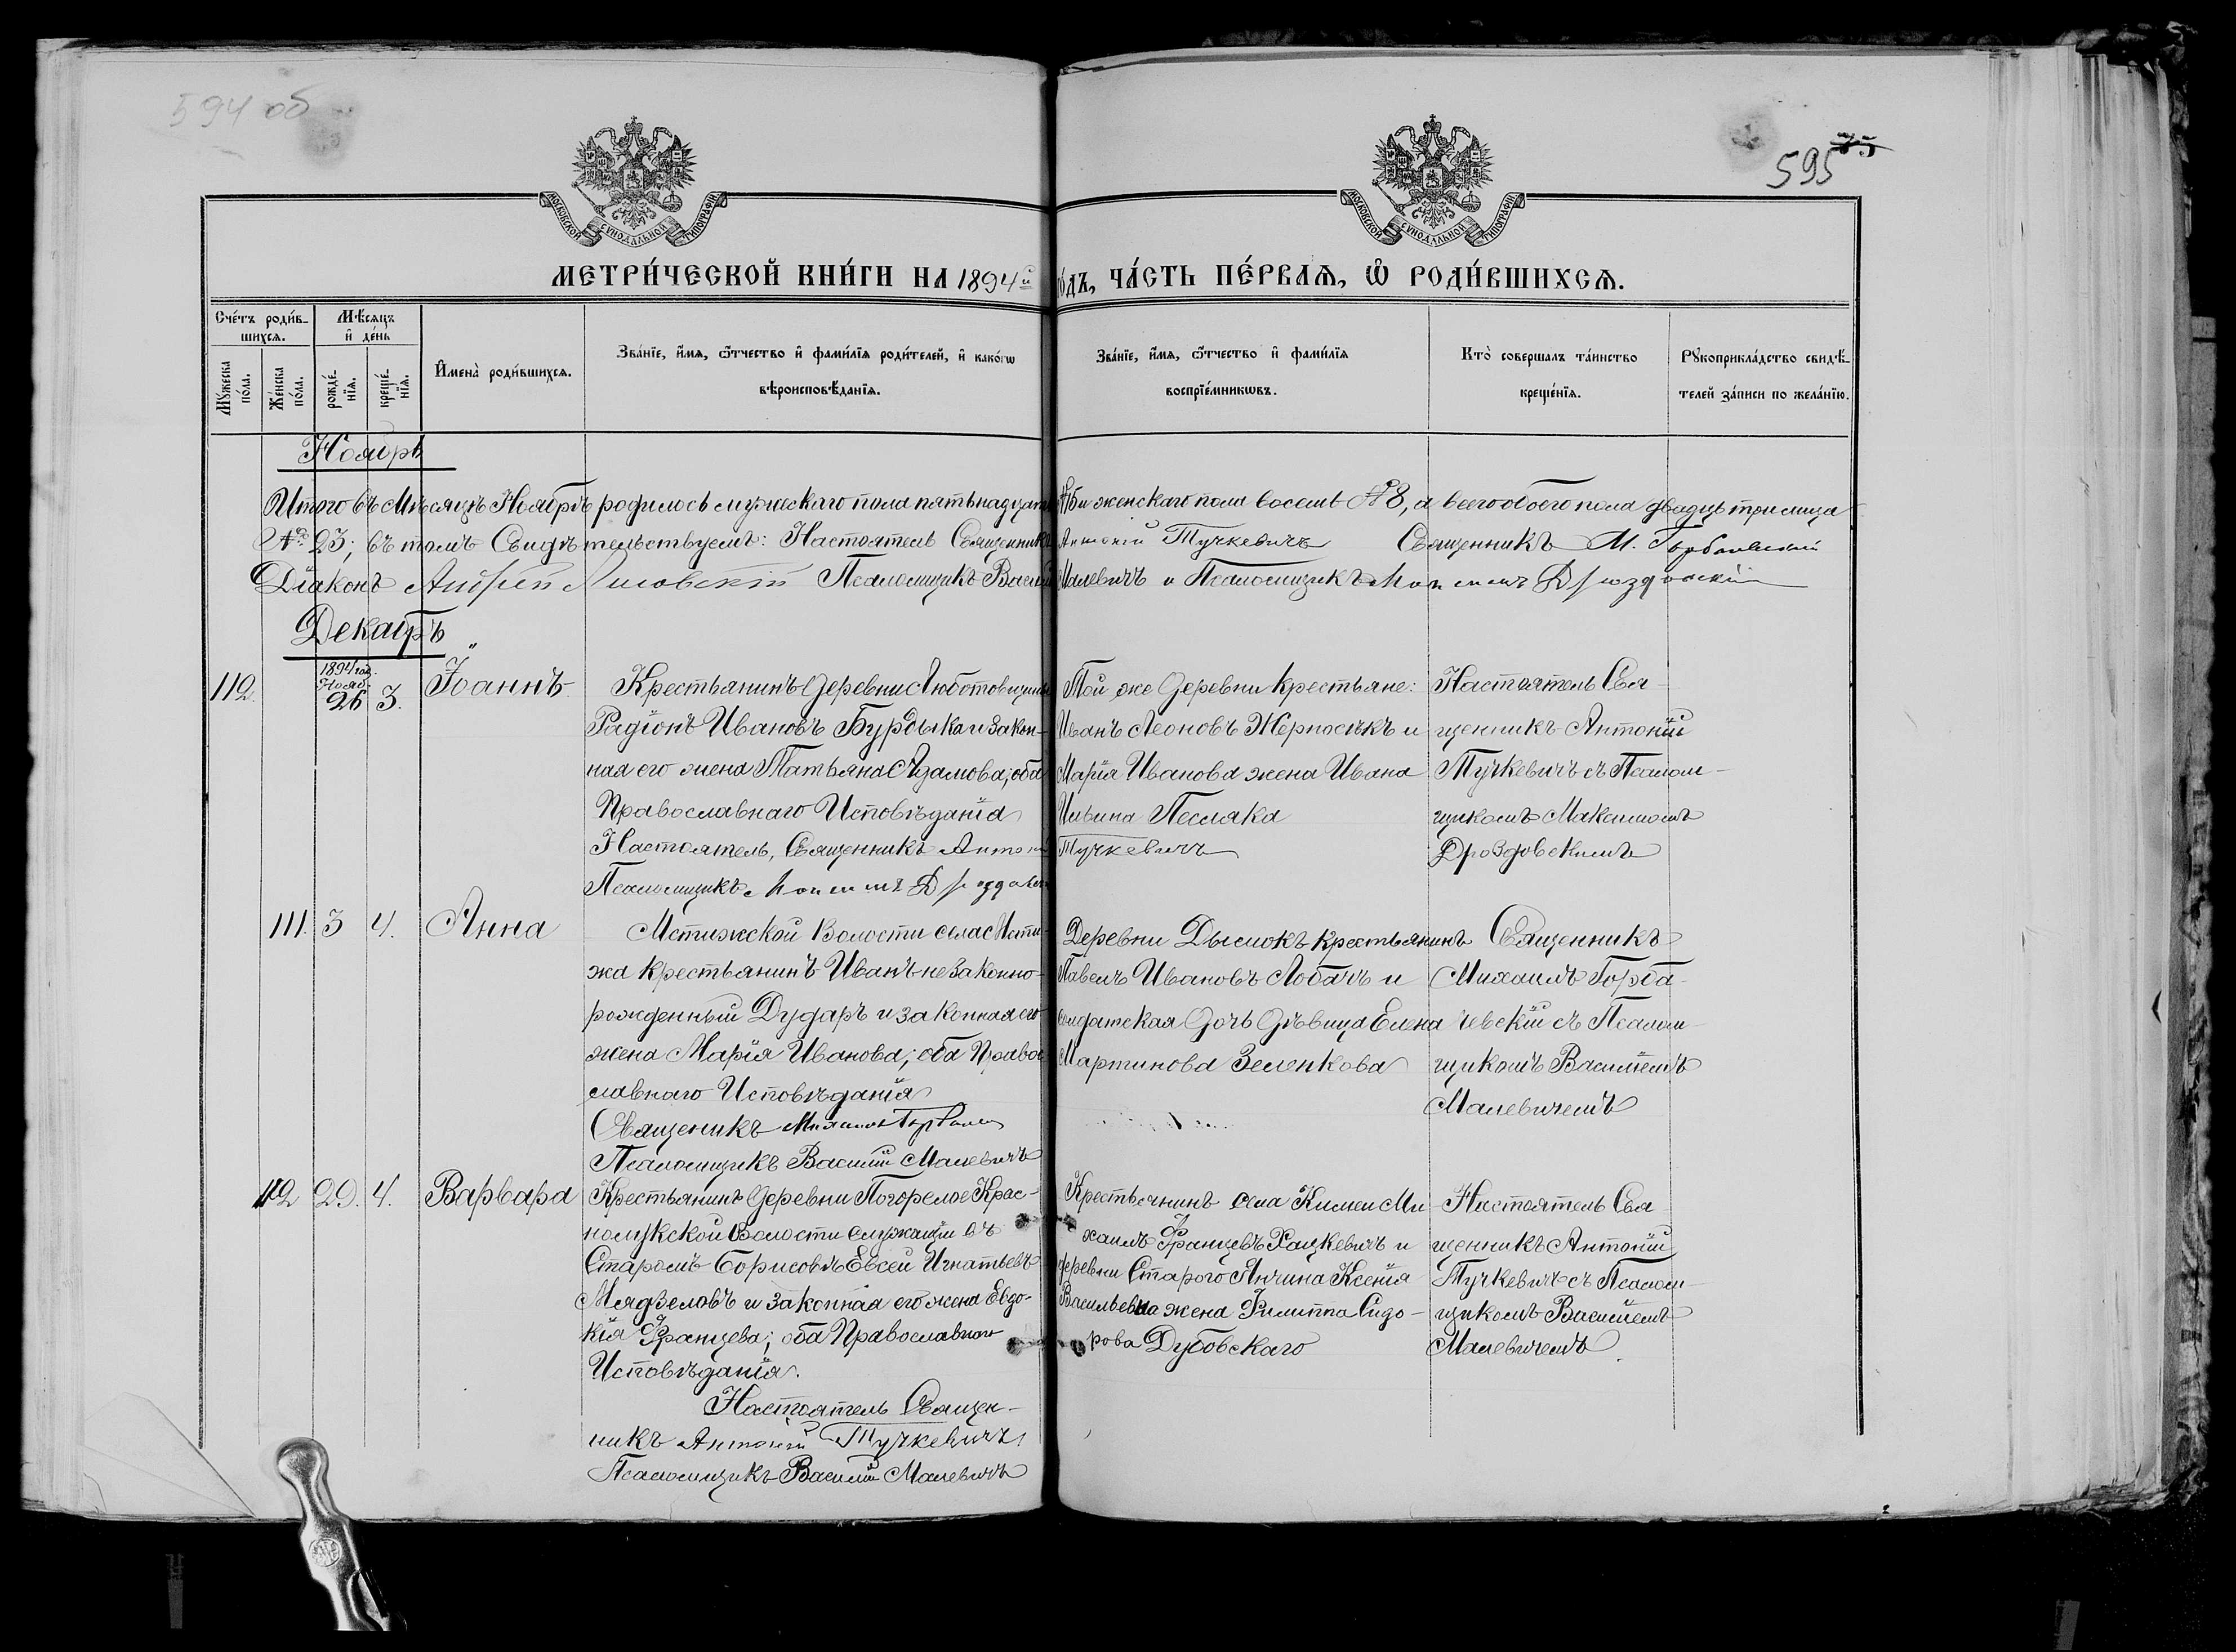 594 об
595
75
МОСКОВСКОЙ СѴНОДАЛЬНОЙ ТИПОГРАФІИ
МОСКОВСКОЙ СѴНОДАЛЬНОЙ ТИПОГРАФІИ
МЕТРИ́ЧЕСКОЙ КНИ́ГИ НА 1894й
го́дъ, ЧА́СТЬ ПЕ́РВАѦ, Ѡ҆ РОДИ́ВШИХСѦ.
Сче́тъ роди́в-
шихсѧ.
Мѣ́сѧцъ
и҆ де́нь
Мꙋ́жеска
по́ла.
Же́нска
по́ла.
рожде́-
нїѧ.
креще́-
нїѧ.
И҆мена̀ роди́вшихсѧ.
Зва́нїе, и҆́мѧ, ѻ҆́тчество и҆ фами́лїѧ роди́телей, и҆ како́гѡ
вѣроисповѣ́данїѧ.
Зва́нїе, и҆́мѧ, ѻ҆́тчество и҆ фами́лїѧ
воспрїе́мникѡвъ.
Кто̀ соверша́лъ та́инство
креще́нїѧ.
Рꙋкоприкла́дство свидѣ́-
телей за́писи по жела́нїю.
Ноябрь
Итого въ Мѣсяцѣ Ноябрѣ родилось мужескаго пола пятьнадцать № 15 и женскаго пола восемь № 8, а всего обоего пола двадць три лица
№ 23; въ томъ Свидѣтельствуемъ: Настоятель Священникъ Антоній Тучкевичъ Священникъ М. Горбачевскій
Діаконъ Андрей Лисовскій Псаломщикъ Василій Малевичъ и Псаломщикъ Максимъ Дроздовскій
Декабрь
112
1894 год.
Нояб.
26
3.
Іоаннъ
Крестьянинъ деревни Люботовщины
Радіонъ Ивановъ Бурдыка и закон-
ная его жена Татьяна Адамова; оба
Православнаго Исповѣданія
Настоятель, Священникъ Антоній
Тучкевичъ
Псаломщикъ Максимъ Дроздовскій
Той же деревни крестьяне:
Иванъ Леоновъ Жерносѣкъ и
Марія Иванова жена Ивана
Ильина Песляка
Настоятель Свя-
щенникъ Антоній
Тучкевичъ съ Псалом-
щикомъ Максимомъ
Дроздовскимъ
111.
3
4.
Анна
Мстижской Волости села Мсти-
жа крестьянинъ Иванъ незаконно-
рожденный Дударъ и законная его
жена Марія Иванова; оба Право-
славнаго Исповѣданія
Священикъ Михаилъ Горбачев
Псаломщикъ Василій Малевичъ
Деревни Дымокъ крестьянинъ
Павелъ Ивановъ Лобачъ и
солдатская дочь дѣвица Елена
Мартинова Зеленкова
Священникъ
Михаилъ Горба-
чевскій съ Псалом-
щикомъ Василіемъ
Малевичемъ
112
29.
4.
Варвара
Крестьянинъ деревни Погорелое Крас-
нолукской Волости служащій въ
Старомъ-Борисовѣ Евсей Игнатьевъ
Мядзеловъ и законная его жена Евдо-
кія Францева; оба Православнаго
Исповѣданія.
Настоятель Священ-
никъ Антоній Тучкевичъ
Псаломщикъ Василій Малевичъ
Крестьянинъ села Кимеи Ми-
хаилъ Францевъ Хацкевичъ и
деревни Старого Янчина Ксенія
Васильевна жена Филиппа Сидо-
рова Дубовскаго
Настоятель Свя-
щенникъ Антоній
Тучкевичъ съ Псалом-
щикомъ Василіемъ
Малевичемъ